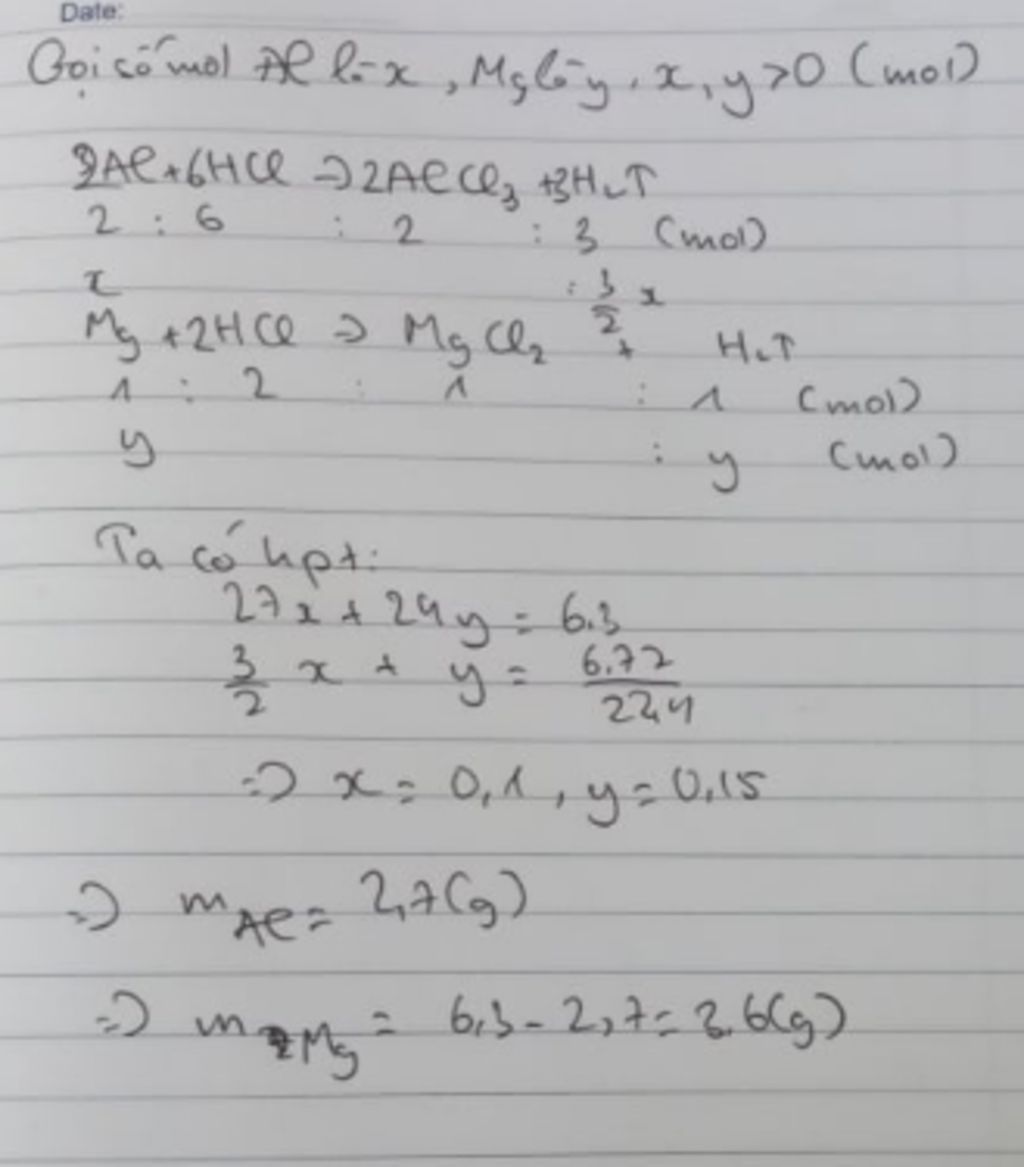 Date:
Gọi số mol Al là x, Mg là y. x, y > 0 (mol)
2Al + 6HCl => 2AlCl₃ + 3H₂↑
2 : 6 : 2 : 3 (mol)
x : 3/2 x
Mg + 2HCl => MgCl₂ + H₂↑
1 : 2 : 1 : 1 (mol)
y : y (mol)
Ta có hpt:
27x + 24y = 6.3
3/2 x + y = 6.72/22,4
=> x = 0,1, y = 0,15
=> mAl = 2,7(g)
=> mMg = 6,3 - 2,7 = 3.6(g)